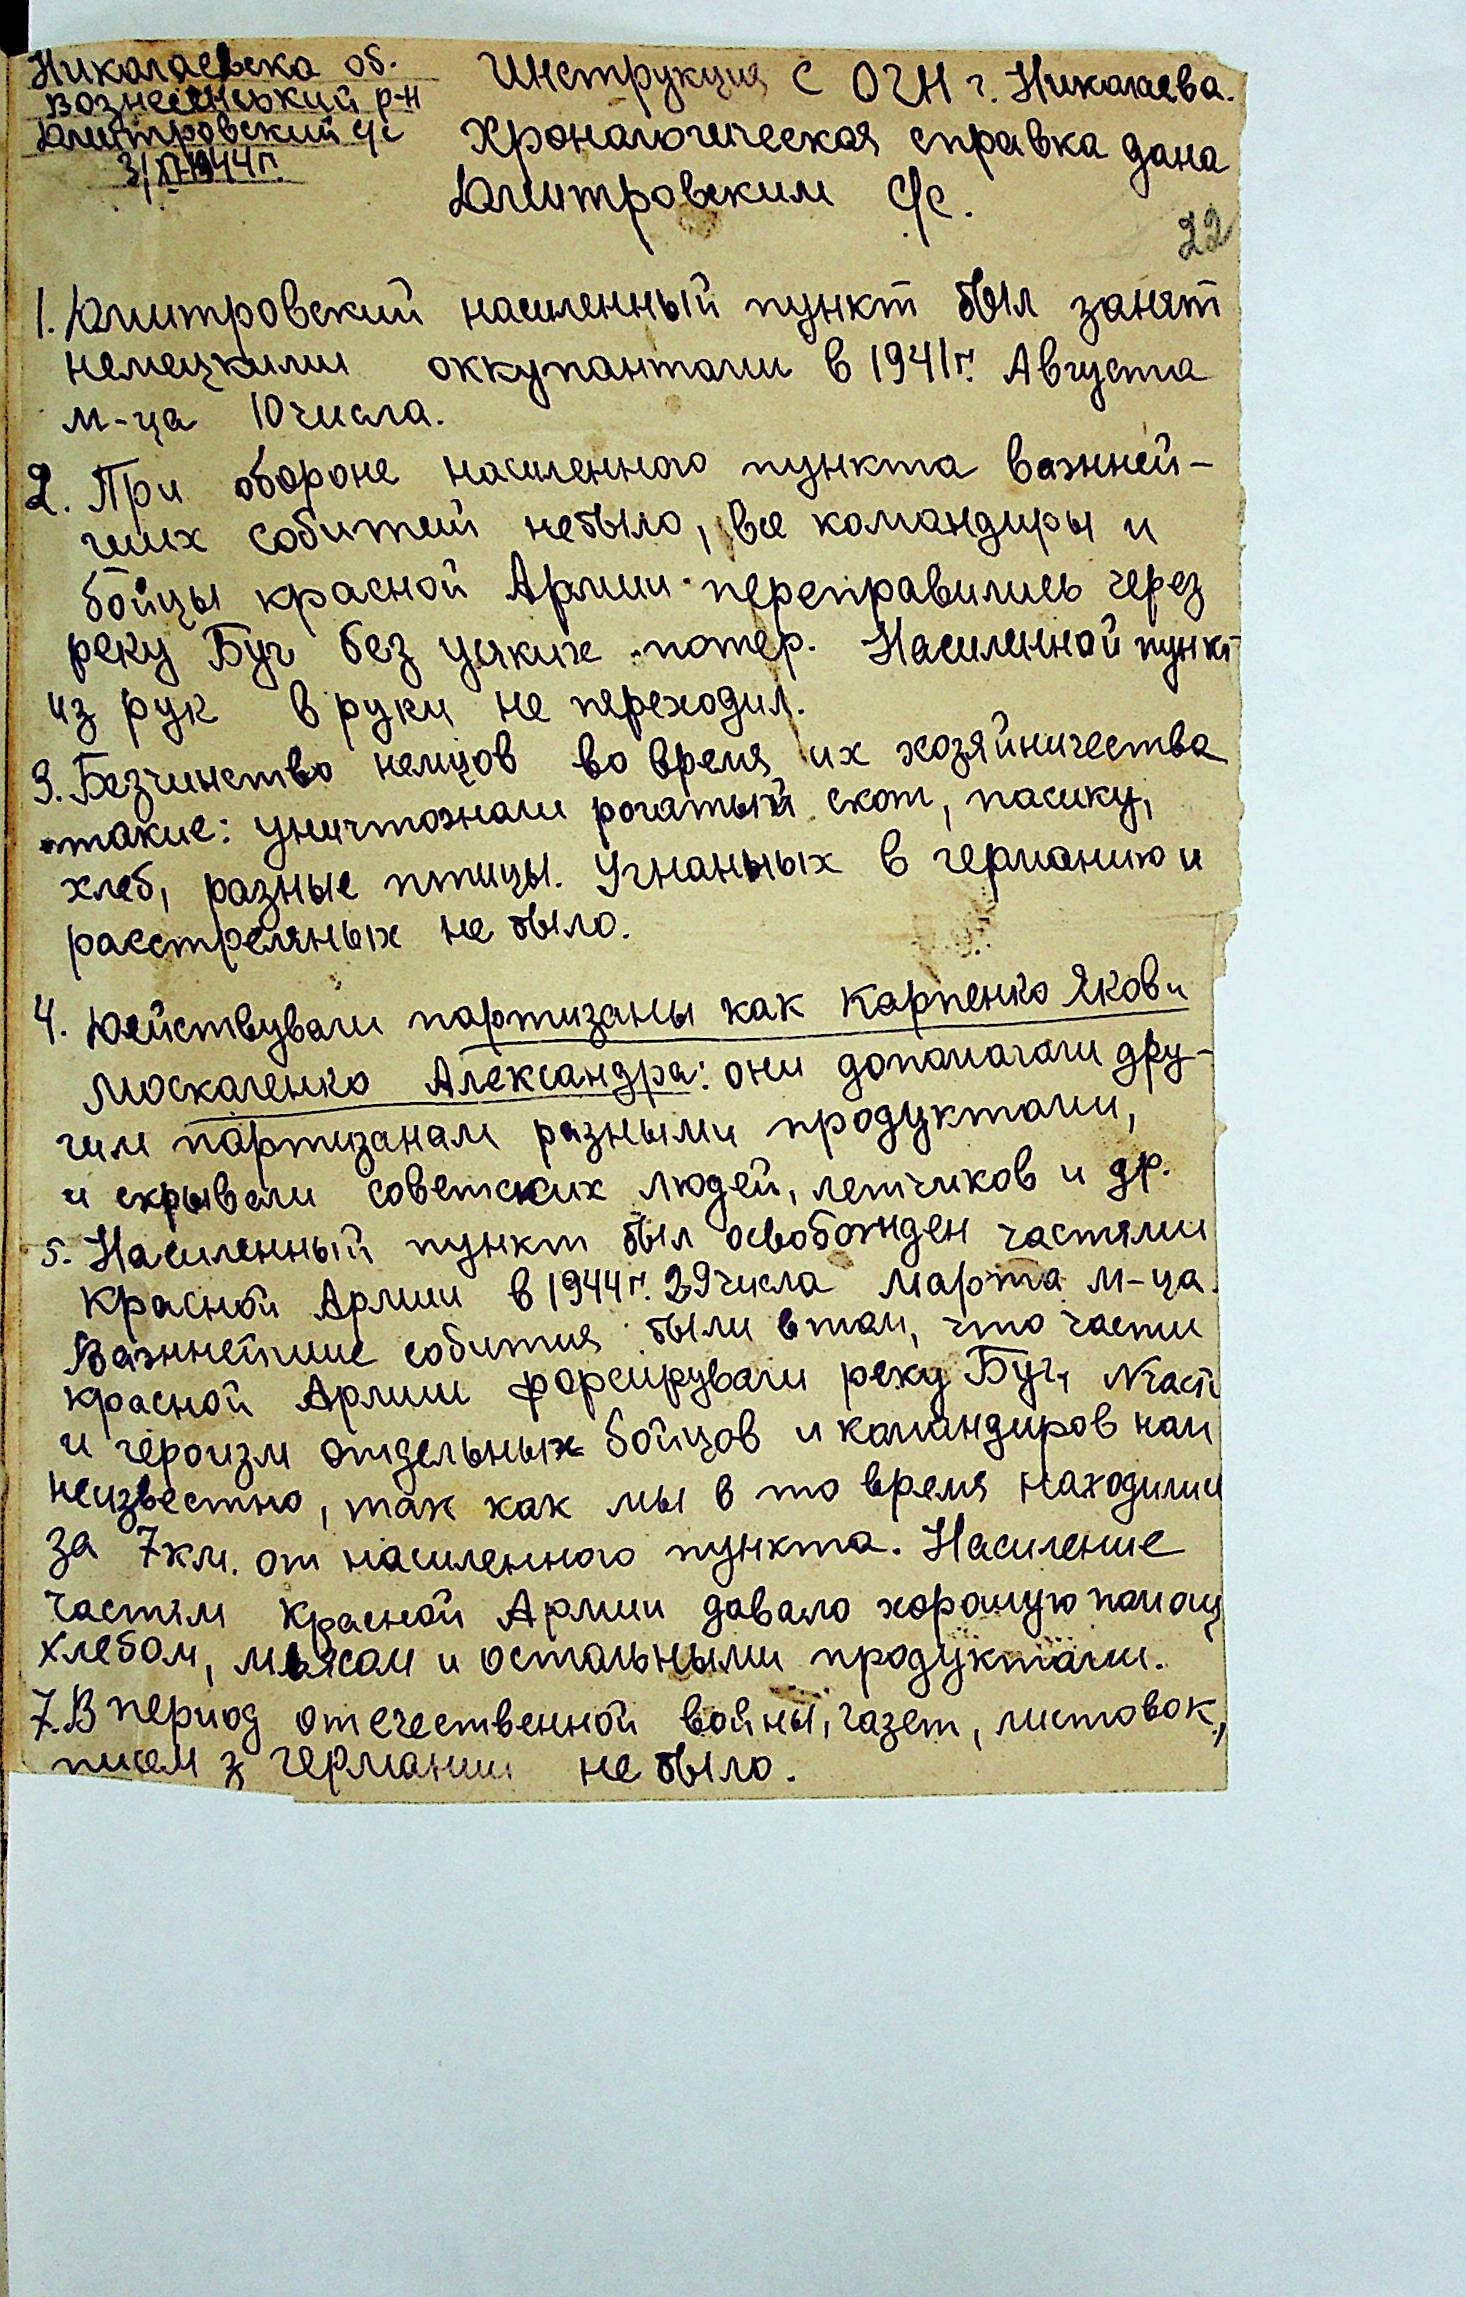 Николаевска об.
Вознесенський р-н
Дмитровский с/с
3/XI-1944 г.
Инструкция с ОГН г. Николаева.
Хронологическая справка дана
Дмитровским с/с.
22
1. Дмитровский населенный пункт был занят
немецкими оккупантами в 1941 г. Августа
м-ца 10 числа.
2. При обороне населенного пункта важней-
ших событий небыло, все командиры и
бойцы красной Армии переправились через
реку Буг без усяких потер. Населенной пункт
из рук в руки не переходил.
3. Безчинство немцов во время их хозяйничества
такие: уничтожали рогатый скот, пасику,
хлеб, разные птицы. Угнанных в германию и
расстреляных не было.
4. Действували партизаны как Карпенко Яков и
Москаленко Александра: они допомагали дру-
гим партизанам разными продуктами,
и скрывали советских людей, летчиков и др.
5. Населенный пункт был освобожден частями
Красной Армии в 1944 г. 29 числа марта м-ца.
Важнейшие события были в том, что части
красной Армии форсирували реку Буг, №част
и героизм отдельных бойцов и командиров нам
неизвестно, так как мы в то время находились
за 7 км. от населенного пункта. Население
частям Красной Армии давало хорошую помощ
хлебом, мьясом и остальными продуктами.
7. В период отечественной войны, газет, листовок,
писем з германии не было.